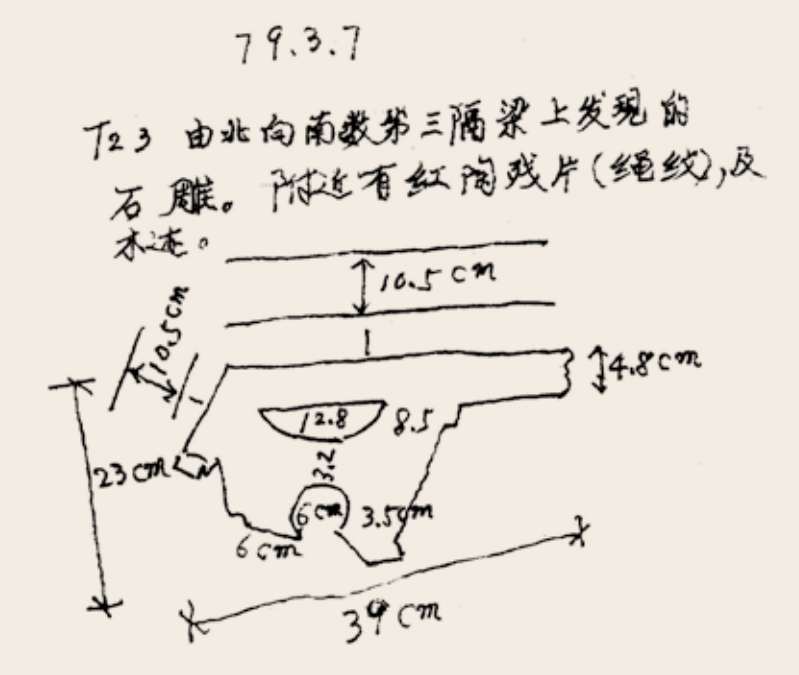 79.3.7
T23 由北向南数第三隔梁上发现的
石雕。附近有红陶残片(绳纹),及
木迹。
10.5cm
10.5cm
1
1
4.8cm
12.8
8.5
23cm
3.2
6cm
3.5cm
6cm
39cm